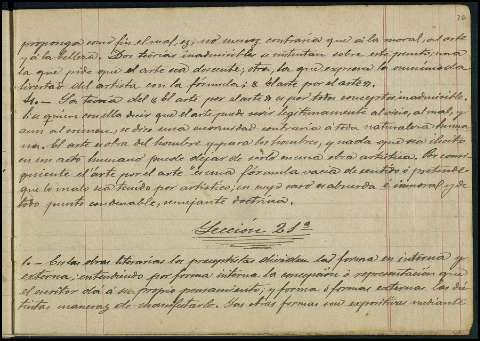 proponga como fin el mal, es no menos contraria que á la moral, al arte
y á la belleza. Dos teorías inadmisibles se sustentan sobre este punto, una
la que pide que el arte sea docente; otra, la que expresa la omnímoda
libertad del artista con la fórmula; "El arte por el arte".
4. — La teoría del "El arte por el arte" es por todos conceptos inadmisible.
Si se quiere con ella decir que el arte puede servir legítimamente al vicio, al mal, y
aún al crimen, se dice una inmoralidad contraria á toda naturaleza huma-
na. El arte es obra del hombre y para los hombres, y nada que sea ilícito
en un acto humano puede dejar de serlo en una obra artística. Por consi-
guiente el "arte por el arte" ó es una fórmula vacía de sentido ó pretende
que lo malo sea tenido por artístico; en cuyo caso es absurda é inmoral, y de
todo punto condenable, semejante doctrina.
Sección 21ª
1. — En las obras literarias los preceptistas dividen la forma en interna y
externa; entendiendo por forma interna la concepción ó representación que
el escritor da á su propio pensamiento; y forma ó formas externas las dis-
tintas maneras de manifestarlo. Las otras formas son expositivas mediante